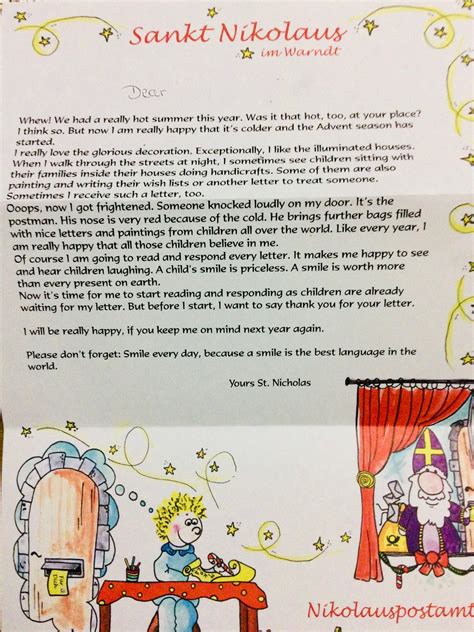 Sankt Nikolaus
im Warndt
Dear
Whew! We had a really hot summer this year. Was it that hot, too, at your place?
I think so. But now I am really happy that it's colder and the Advent season has
started.
I really love the glorious decoration. Exceptionally, I like the illuminated houses.
When I walk through the streets at night, I sometimes see children sitting with
their families inside their houses doing handicrafts. Some of them are also
painting and writing their wish lists or another letter to treat someone.
Sometimes I receive such a letter, too.
Ooops, now I got frightened. Someone knocked loudly on my door. It's the
postman. His nose is very red because of the cold. He brings further bags filled
with nice letters and paintings from children all over the world. Like every year, I
am really happy that all those children believe in me.
Of course I am going to read and respond every letter. It makes me happy to see
and hear children laughing. A child's smile is priceless. A smile is worth more
than every present on earth.
Now it's time for me to start reading and responding as children are already
waiting for my letter. But before I start, I want to say thank you for your letter.
I will be really happy, if you keep me on mind next year again.
Please don't forget: Smile every day, because a smile is the best language in the
world.
Yours St. Nicholas
Nikolauspostamt